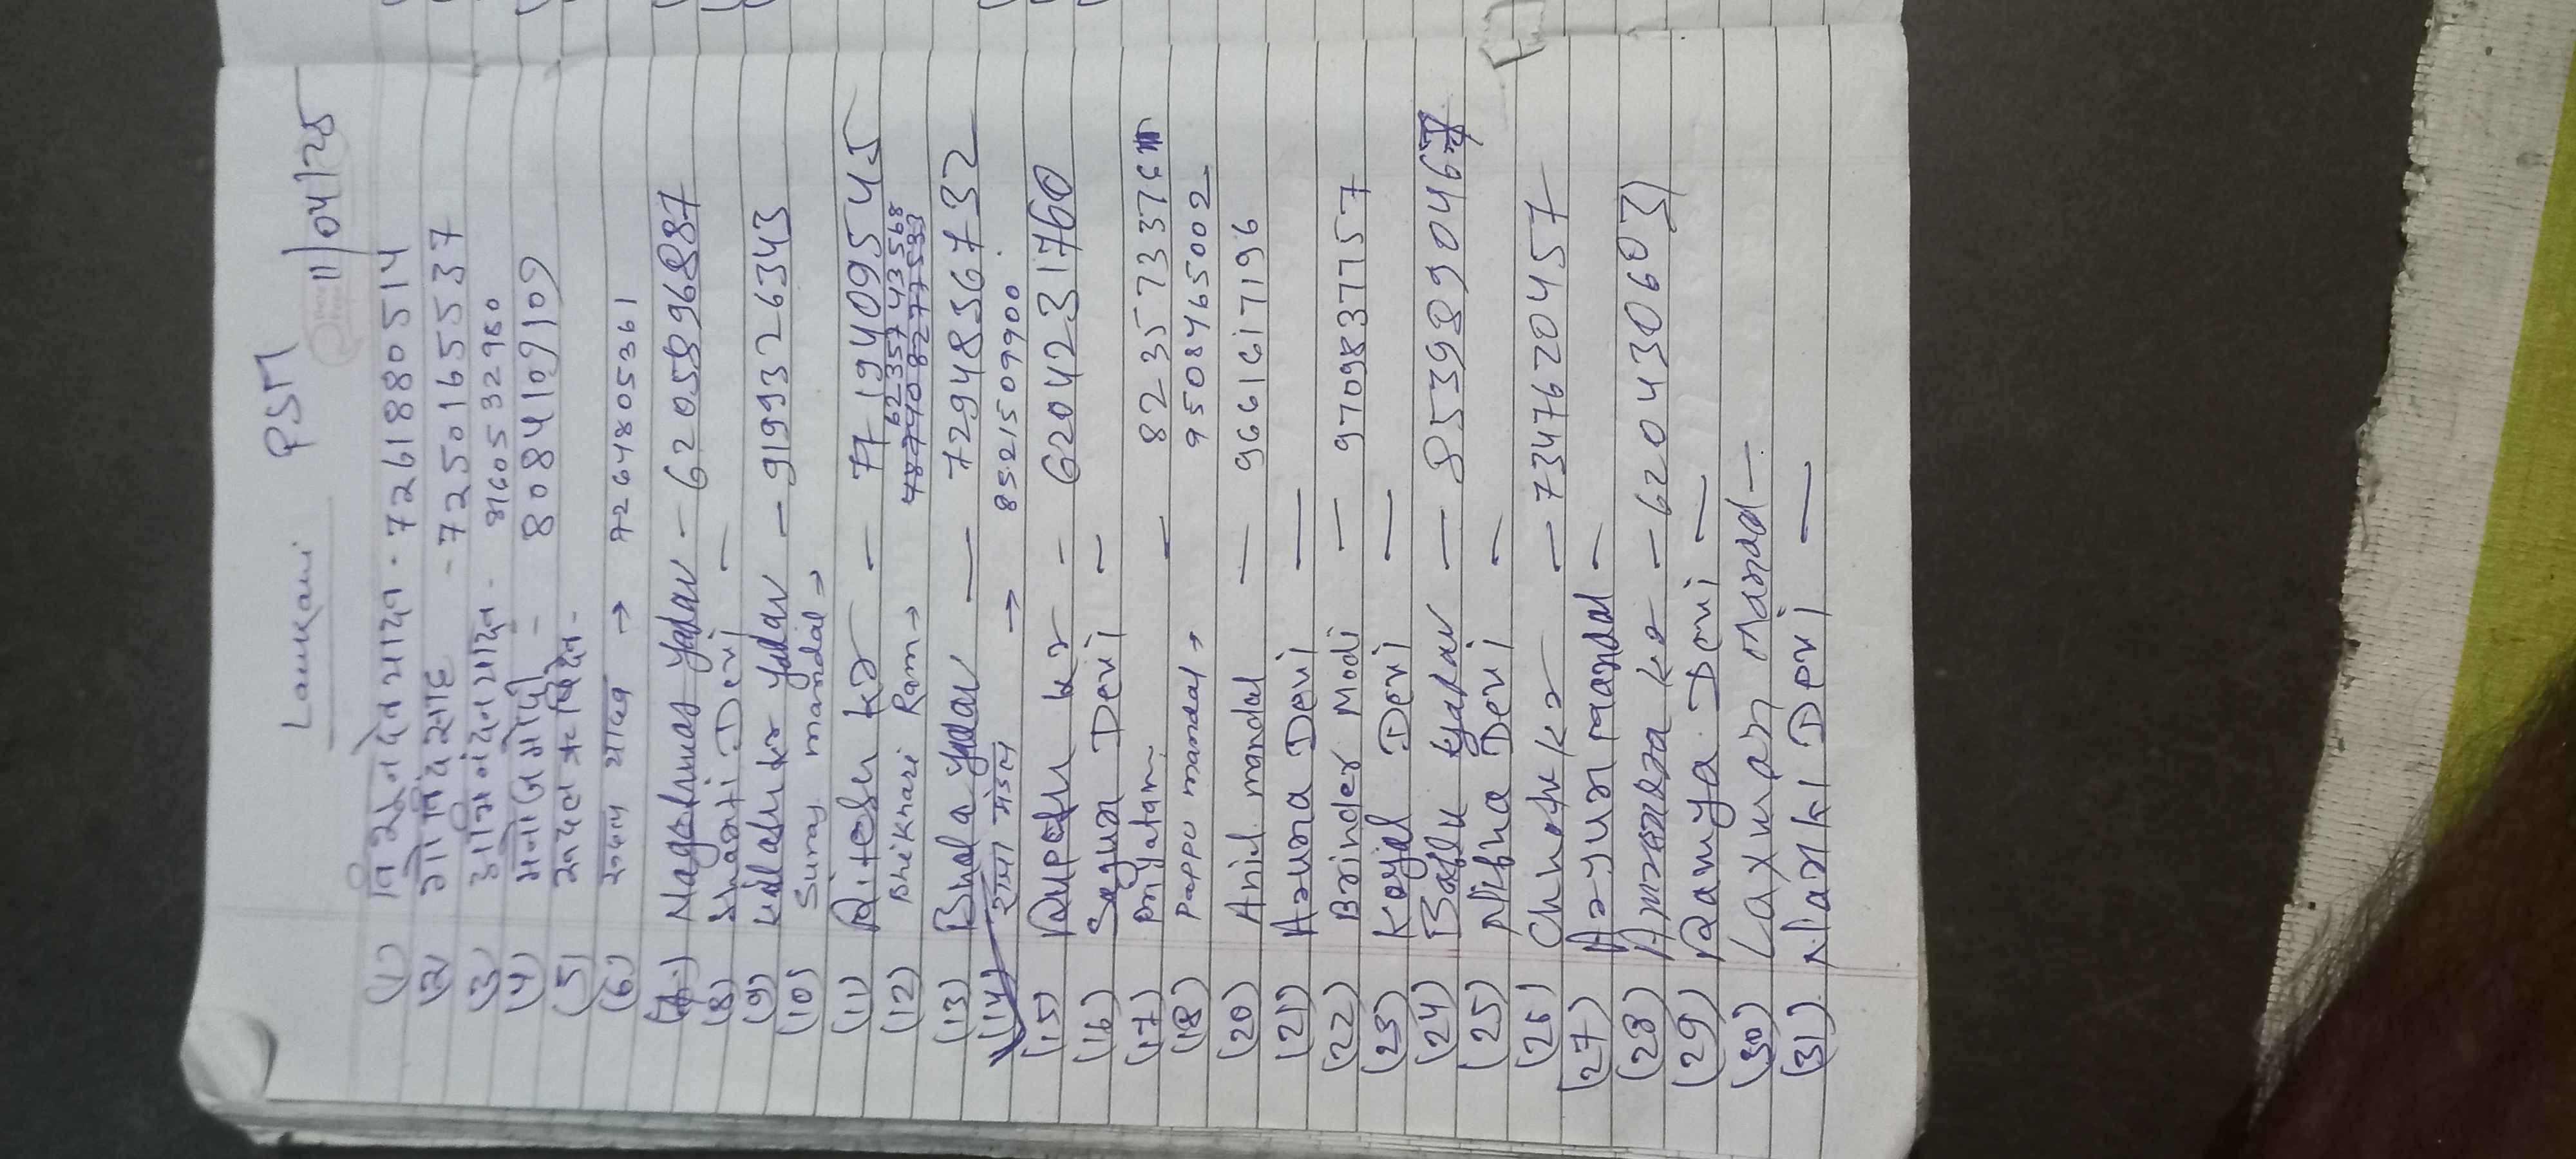 Laukani PSM 11/04/25
(1) - 7261880514
(2) गोविंद साह - 7250165537
(3) - 8160532980
(4) मनोज मोदी - 8084109109
(5)
(6) → 7264805361
(7) Nageshwas Yadav - 6205896887
(8) Shanti Devi -
(9) Kilash kr Yadav - 9199326343
(10) Suraj mandal →
(11) Ritesh kr - 7719409545
6235743568
(12) Bhikhari Ram →
(13) Bhola yadav - 7294836732
(14) → 8521509900
(15) Rupesh kr - 6204231760
(16) Sagun Devi -
(17) Priyatam - 823573376
(18) Pappu mandal → 9508465002
(20) Anil mandal - 9661617196
(21) Azuna Devi -
(22) Brinder Modi - 9709837757
(23) Koyal Devi -
(24) Bablu Yadav - 853989046
(25) Nibha Devi -
(26) Chhotu kr - 7347620457
(27) Arjun mandal -
(28) kr - 6204306603)
(29) Ramya Devi -
(30) Laxman Mandal -
(31) Narki Devi -